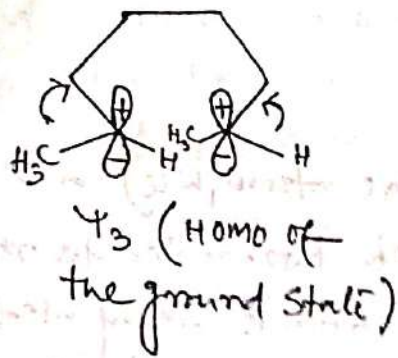 + +
H₃C - H H₃C - H
Ψ₃ (HOMO of
the ground state)